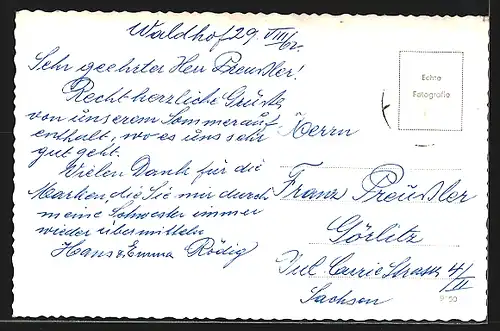 Waldhof 29 VIII/62.
Sehr geehrter Herr Preußler!
Recht herzliche Grüße
von unserem Sommerauf
enthalt, wo es uns sehr
gut geht.
Vielen Dank für die
Marken, die Sie mir durch
meine Schwester immer
wieder übermitteln
Hans & Emma Rödig
Echte
Fotografie
Herrn
Franz Preußler
Görlitz
Jul. Currie Strasse 4/II
Sachsen
9 50